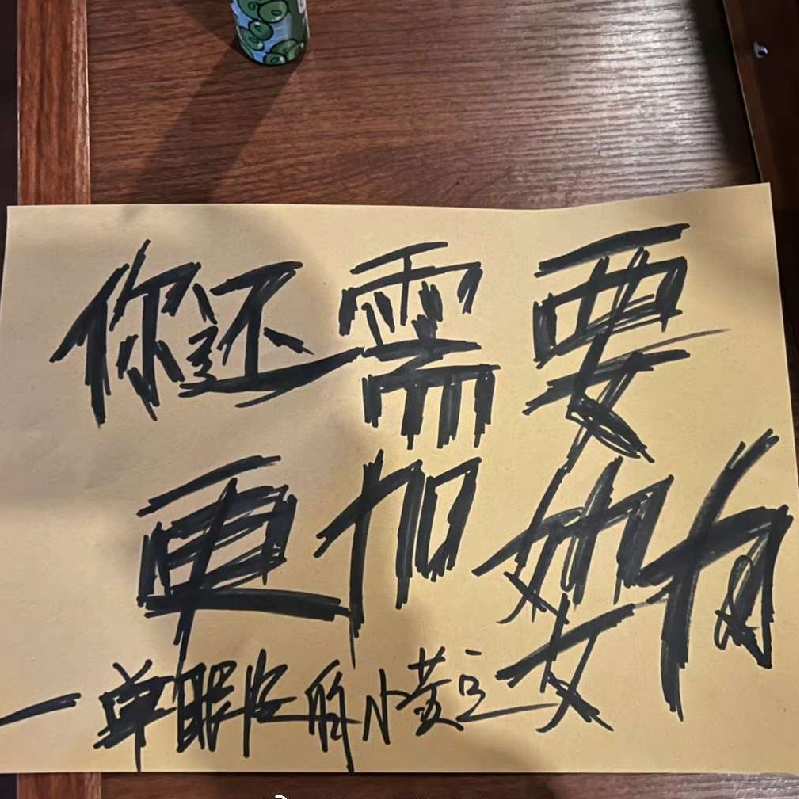 你还需要
更加努力
一单眼皮的小黄豆